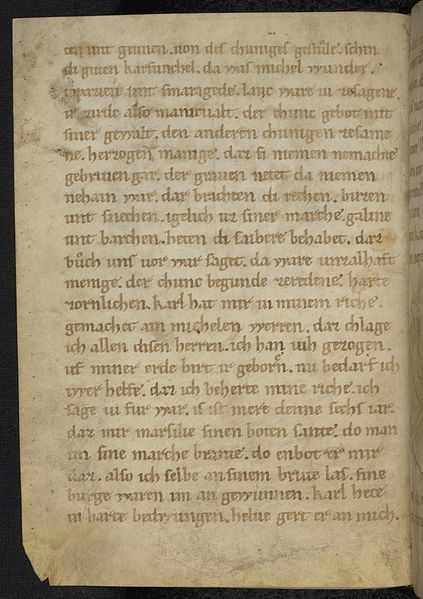 ten unt grunen. uon des chuniges gestůle. schin
di guten karfunchel. da was michel wunder.
unt smaragede. lanc ware iz ze sagene.
ir zirde also manicualt. der chunc gebot mit
siner gewalt. den anderen chunigen ze same
ne. herzogen manige. daz si niemen nemachte
gebriuen gar. der grauen netet da niemen
nehain war. daz brachten di rechen. buzen
unt snechen. igelich uz siner marche. galine
unt barchen. heten di saibere behabet. daz
bůch uns uor war saget. da ware unzalhaft
menige. der chunc begunde ze redene. harte
zornlichen. karl hat mir in minem riche.
gemachet ain michelen werren. daz chlage
ich allen disen herren. ich han uih gezogen.
uf miner erde birt ir geborn. nu bedarf ich
iwer helfe. daz ich beherte mine riche. ich
sage iu fur war. is ist mere denne sechs iar.
daz mir marsilie sinen boten sante. do man
im sine marche brante. do enbot er mir
daz. also ich selbe an sinem briue las. sine
burge waren im an gewunnen. karl hete
in harte bedwungen. helue gert er an mich.